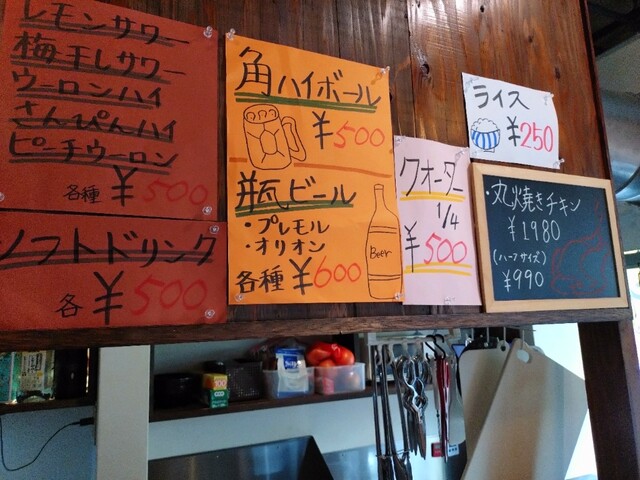 レモンサワー
梅干しサワー
ウーロンハイ
さんぴんハイ
ピーチウーロン
各種 ¥500
ソフトドリンク
各 ¥500
角ハイボール
¥500
瓶ビール
・プレモル
・オリオン
各種 ¥600
Beer
クォーター
1/4
¥500
ライス
¥250
・丸焼きチキン
¥1980
(ハーフサイズ)
¥990
100